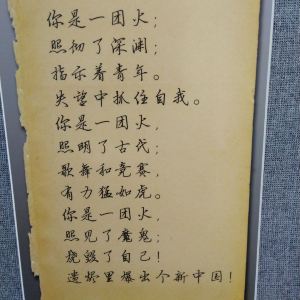 你是一团火；
照彻了深渊；
指示着青年。
失望中抓住自我。
你是一团火，
照明了古代；
歌舞和竞赛，
有力猛如虎。
你是一团火，
照见了魔鬼；
烧毁了自己！
遗烬里爆出个新中国！